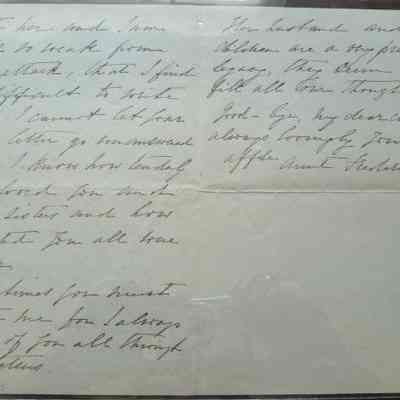 her and I am
so weak from
attack, that I find
difficult to write
I cannot let your
letter go unanswered
I know how tenderly
loved you and
sisters and how
you all were
times you must
me for I always
of you all through
Her husband and
children are a very pre
legacy, they even
fill all our thought
Good-bye, my dear
always lovingly your
affte Aunt